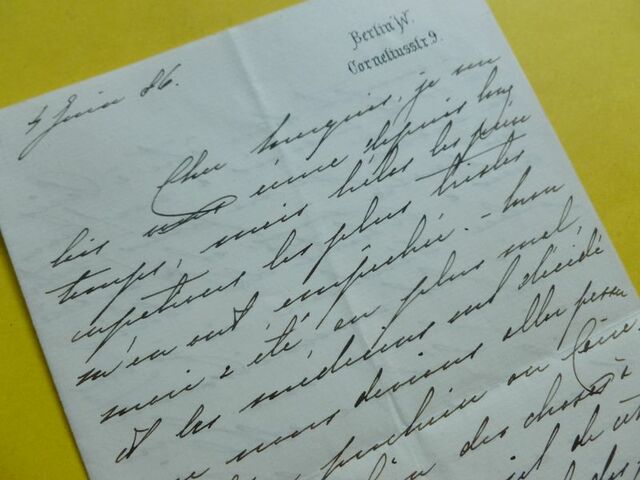 Berlin W.
Corneliusstr. 9.
4 Juin 86.
Cher marquis, je vou
lais vous écrire depuis long
temps, mais hélas les préoc
cupations les plus tristes
m'en ont empêché. – Mon
mari a été au plus mal,
et les médecins ont décidé
que nous devions aller passer
prochain au Caire
des choses à